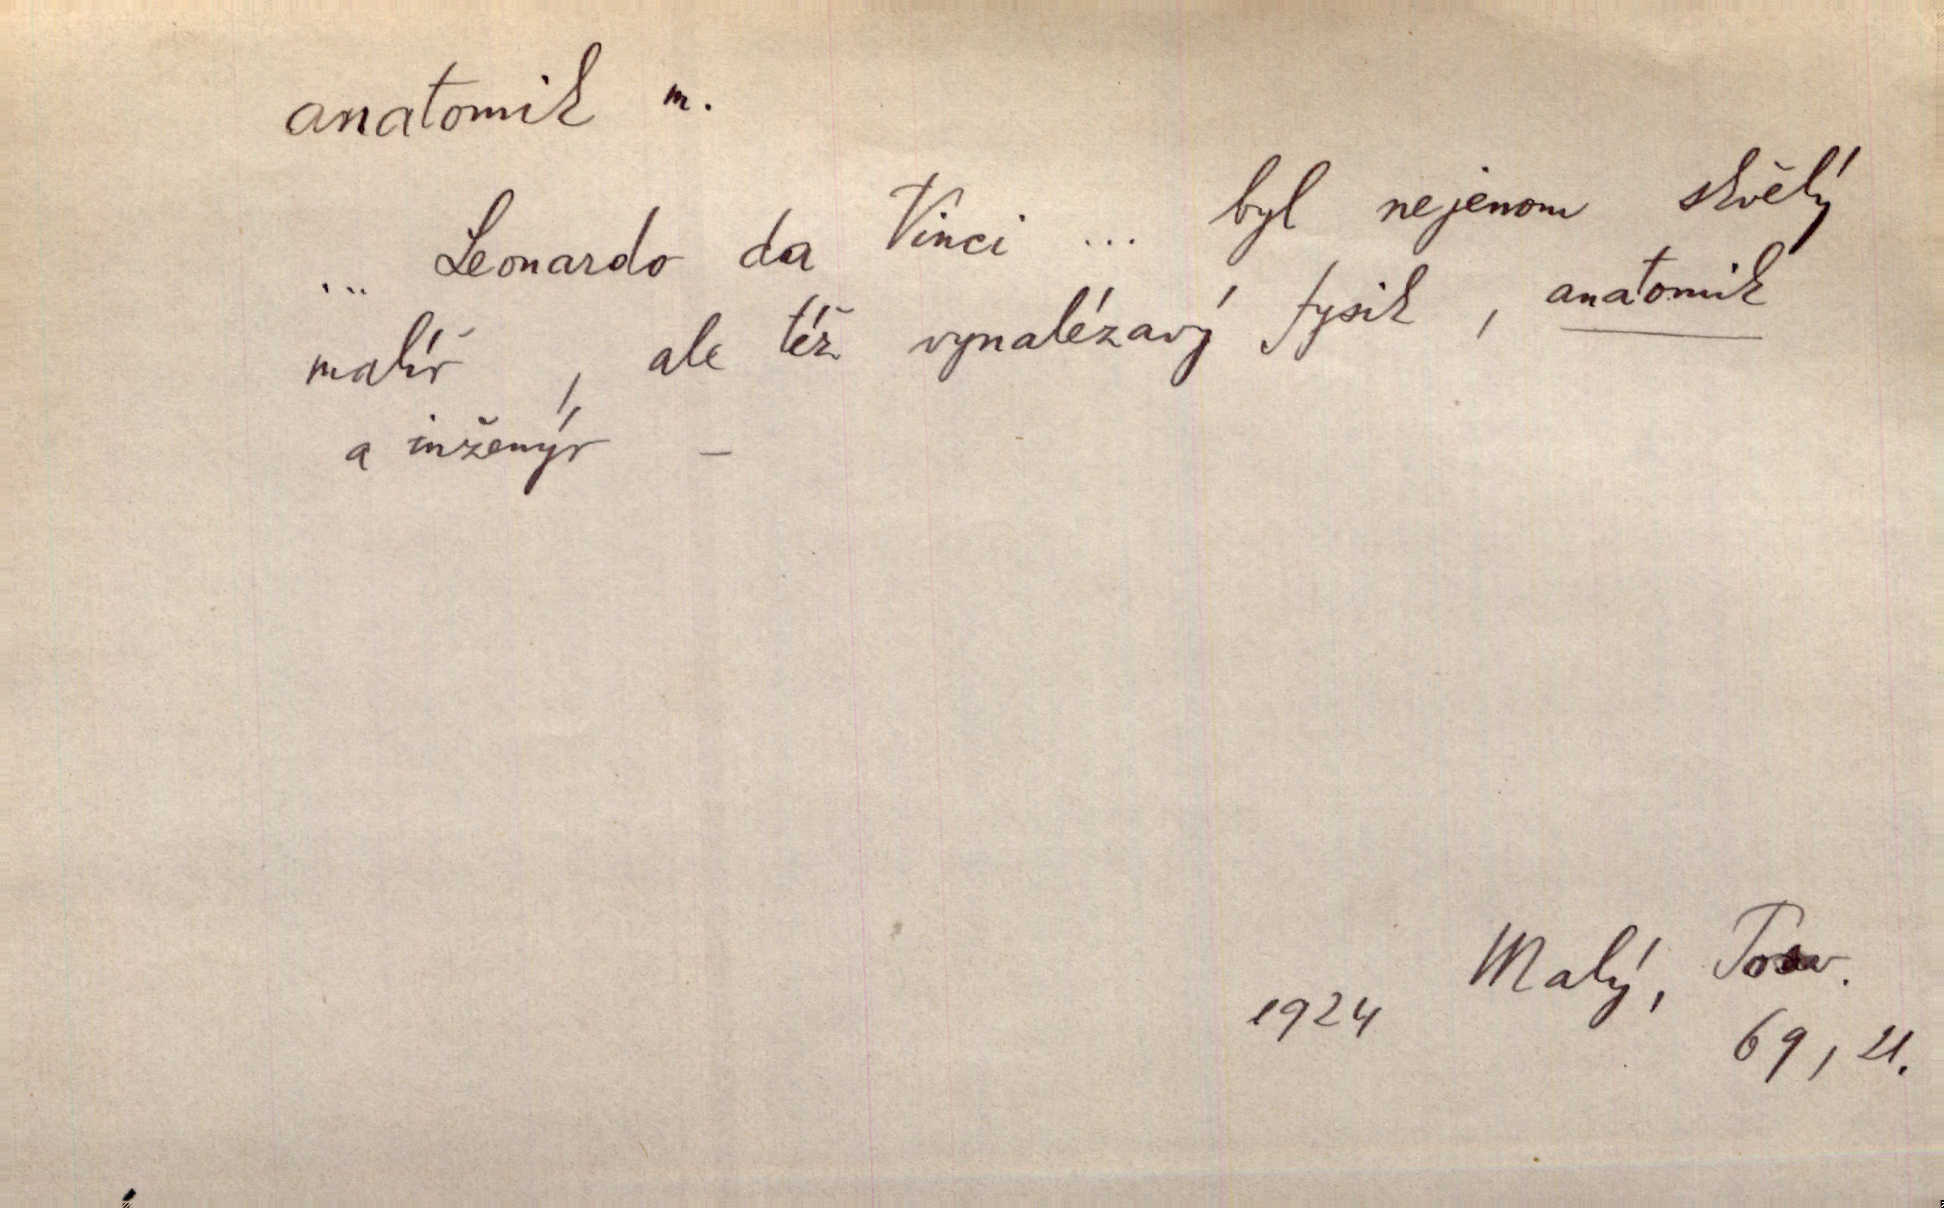 anatomik m.
... Leonardo da Vinci ... byl nejenom skvělý
malíř, ale též vynalézavý fysik, anatomik
a inženýr –
Malý,
1924
69, 21.